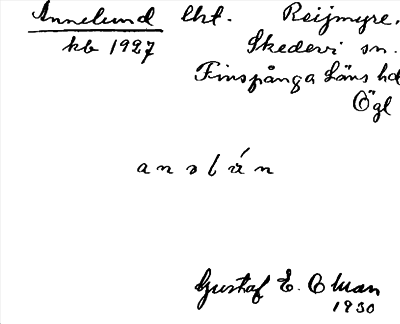 Annelund lht. Reijmyre,
kb 1927 Skedevi sn.
Finspånga Läns hd
Ögl
Gustaf E. Ohman
1930